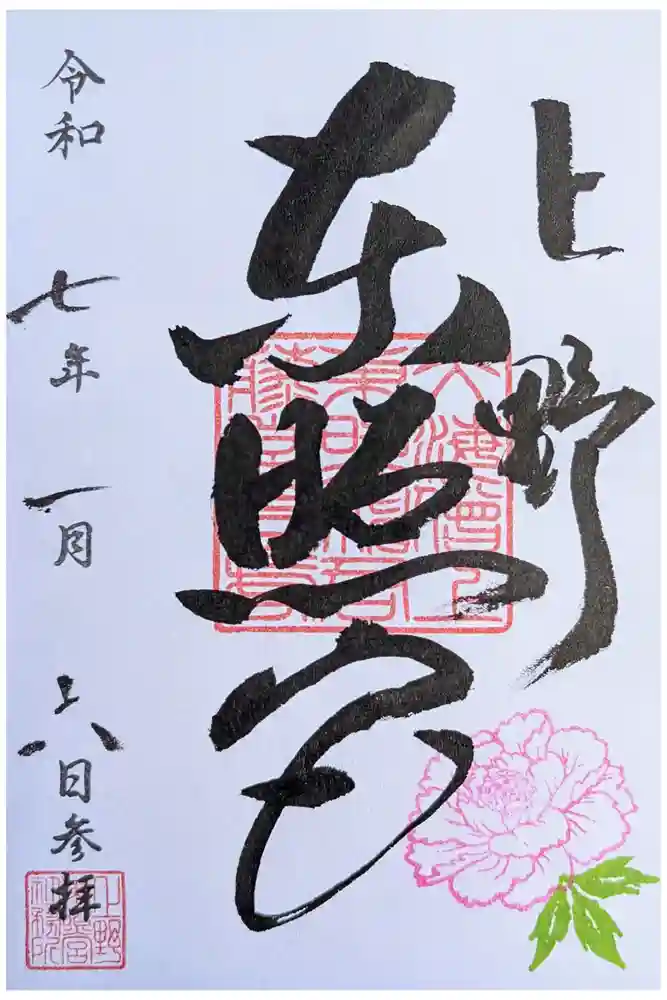 上野
東照宮
令和七年一月六日参拝
上野東照宮社務所